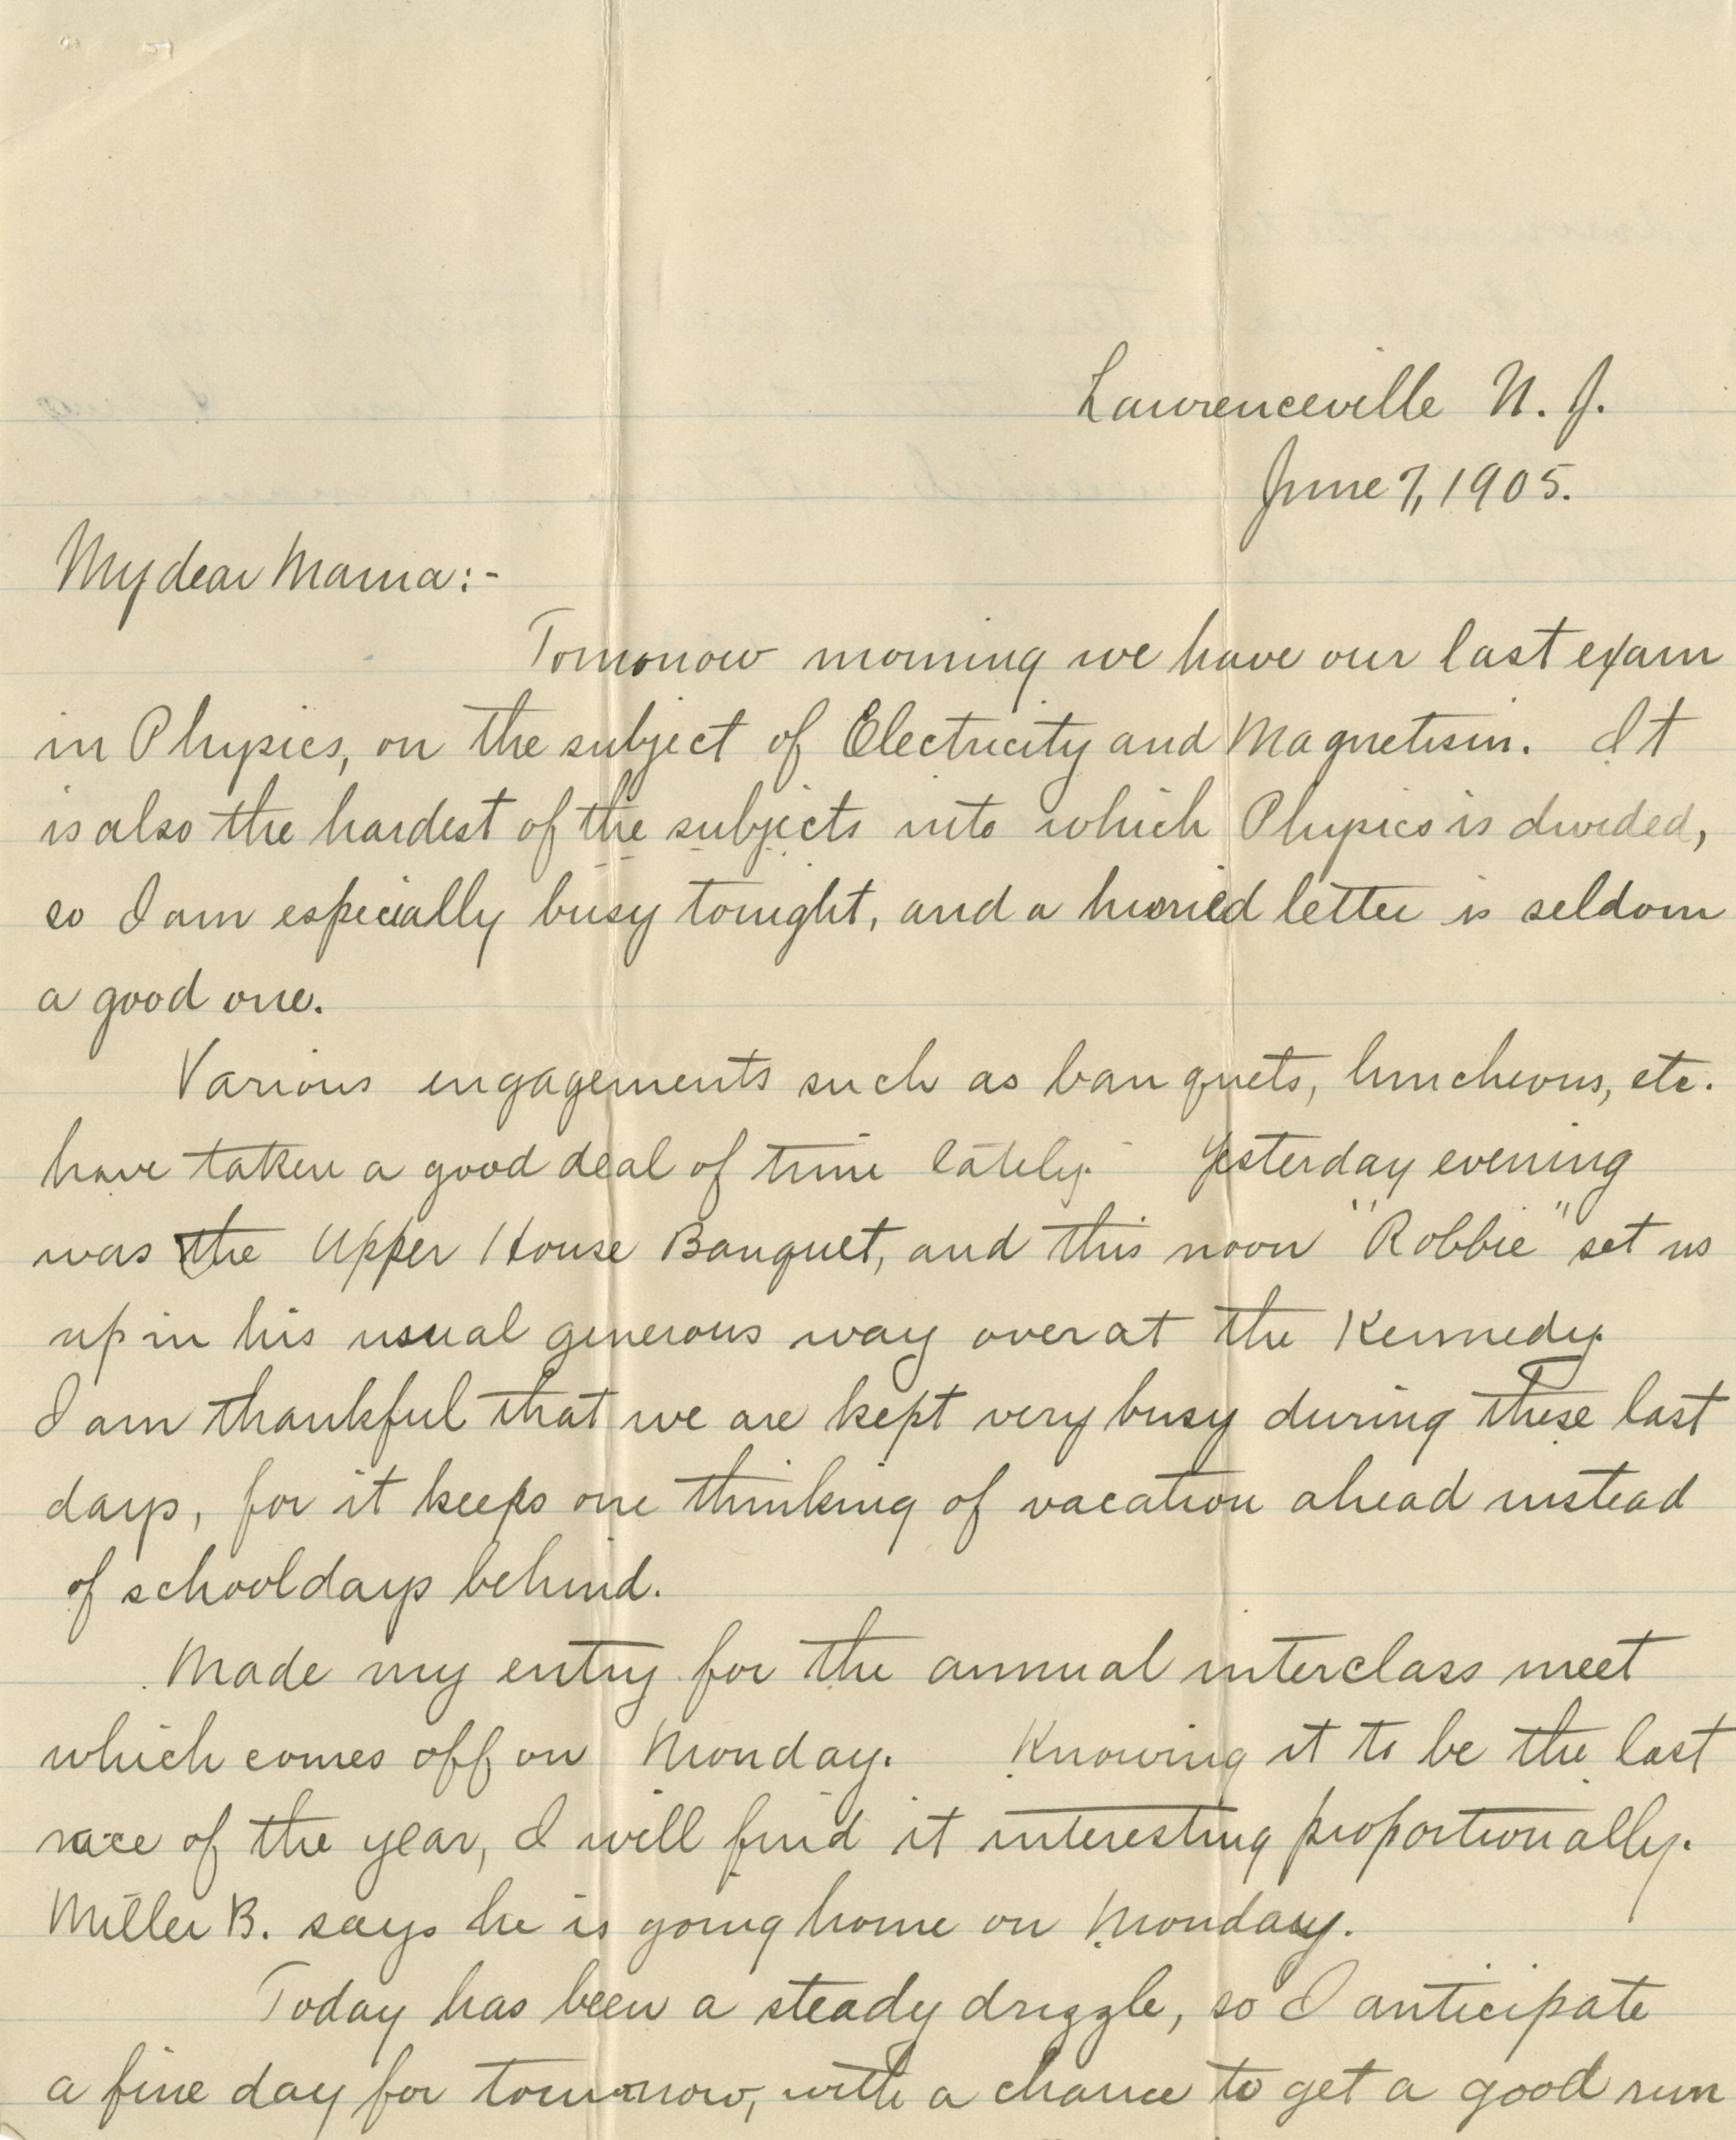 Lawrenceville N. J.
June 7, 1905.
My dear Mama:-
Tomorrow morning we have our last exam
in Physics, on the subject of Electricity and Magnetism. It
is also the hardest of the subjects into which Physics is divided,
so I am especially busy tonight, and a hurried letter is seldom
a good one.
Various engagements such as banquets, luncheons, etc.
have taken a good deal of time lately. Yesterday evening
was the Upper House Banquet, and this noon "Robbie" set us
up in his usual generous way over at the Kennedy.
I am thankful that we are kept very busy during these last
days, for it keeps one thinking of vacation ahead instead
of schooldays behind.
Made my entry for the annual interclass meet
which comes off on Monday. Knowing it to be the last
race of the year, I will find it interesting proportionally.
Miller B. says he is going home on Monday.
Today has been a steady drizzle, so I anticipate
a fine day for tomorrow, with a chance to get a good run